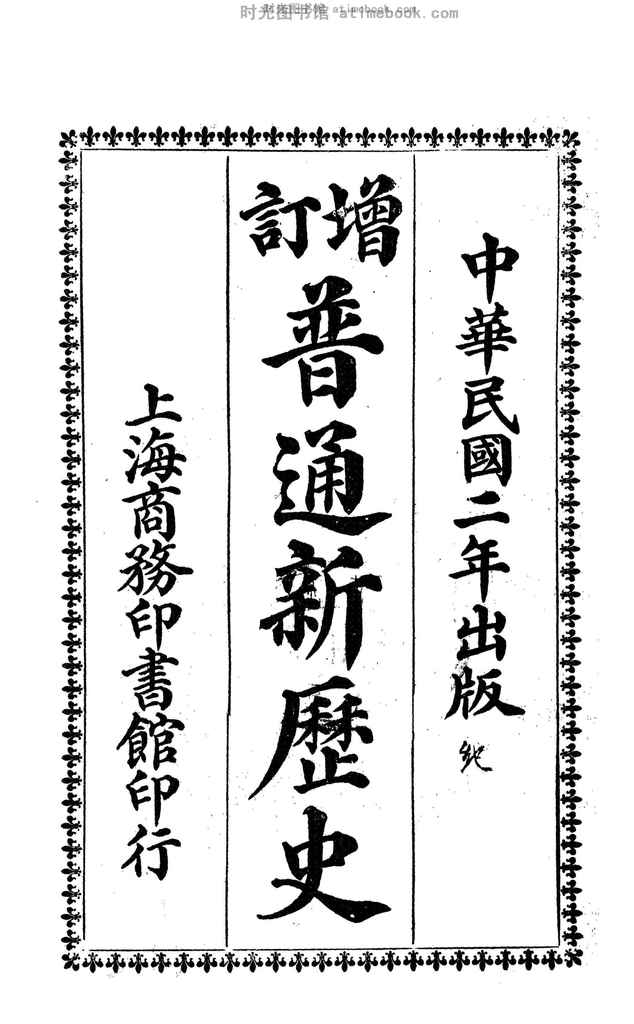 时光图书馆 atimebook.com
中華民國二年出版
增訂
普通新歷史
上海商務印書館印行